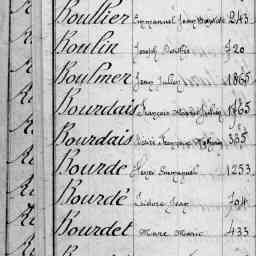 Boullier Emmanuel Jean Baptiste 243
Boulin Joseph 720
Boulmer Jean Julien 1865
Bourdais François Marie Julien 1765
Bourdais Pierre François 335
Bourde Henri Emmanuel 1253
Bourdé Isidore Jean 704
Bourdet Marc Marie 433